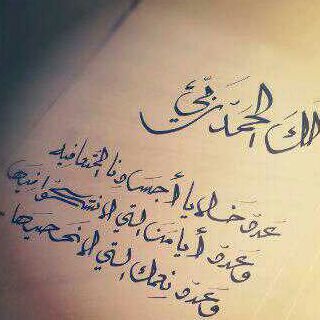 لك الحمد ربي
عدد خلايا أجسادنا المتعافيه
وعدد أيامنا التي لا نشكو فيها
وعدد نعمك التي لا نحصيها